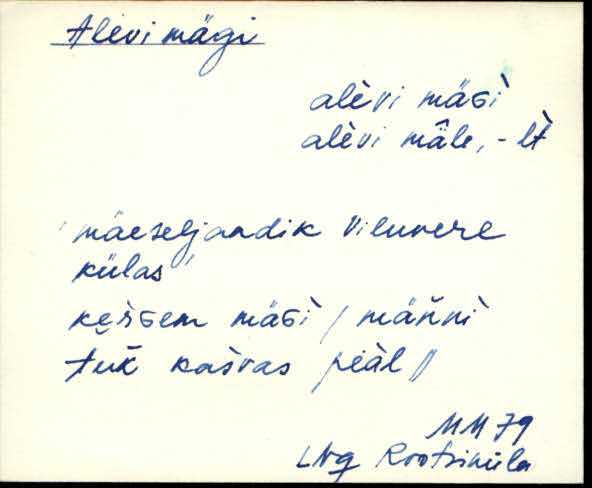 Alevimägi
alèvi mäɢì
alèvi mâle, -lt̀
'mäeseljandik Viluvere
külas'
mäɢì / männì
tuk̆ kašvas peàl //
MM 79
LNg Rootsiküla